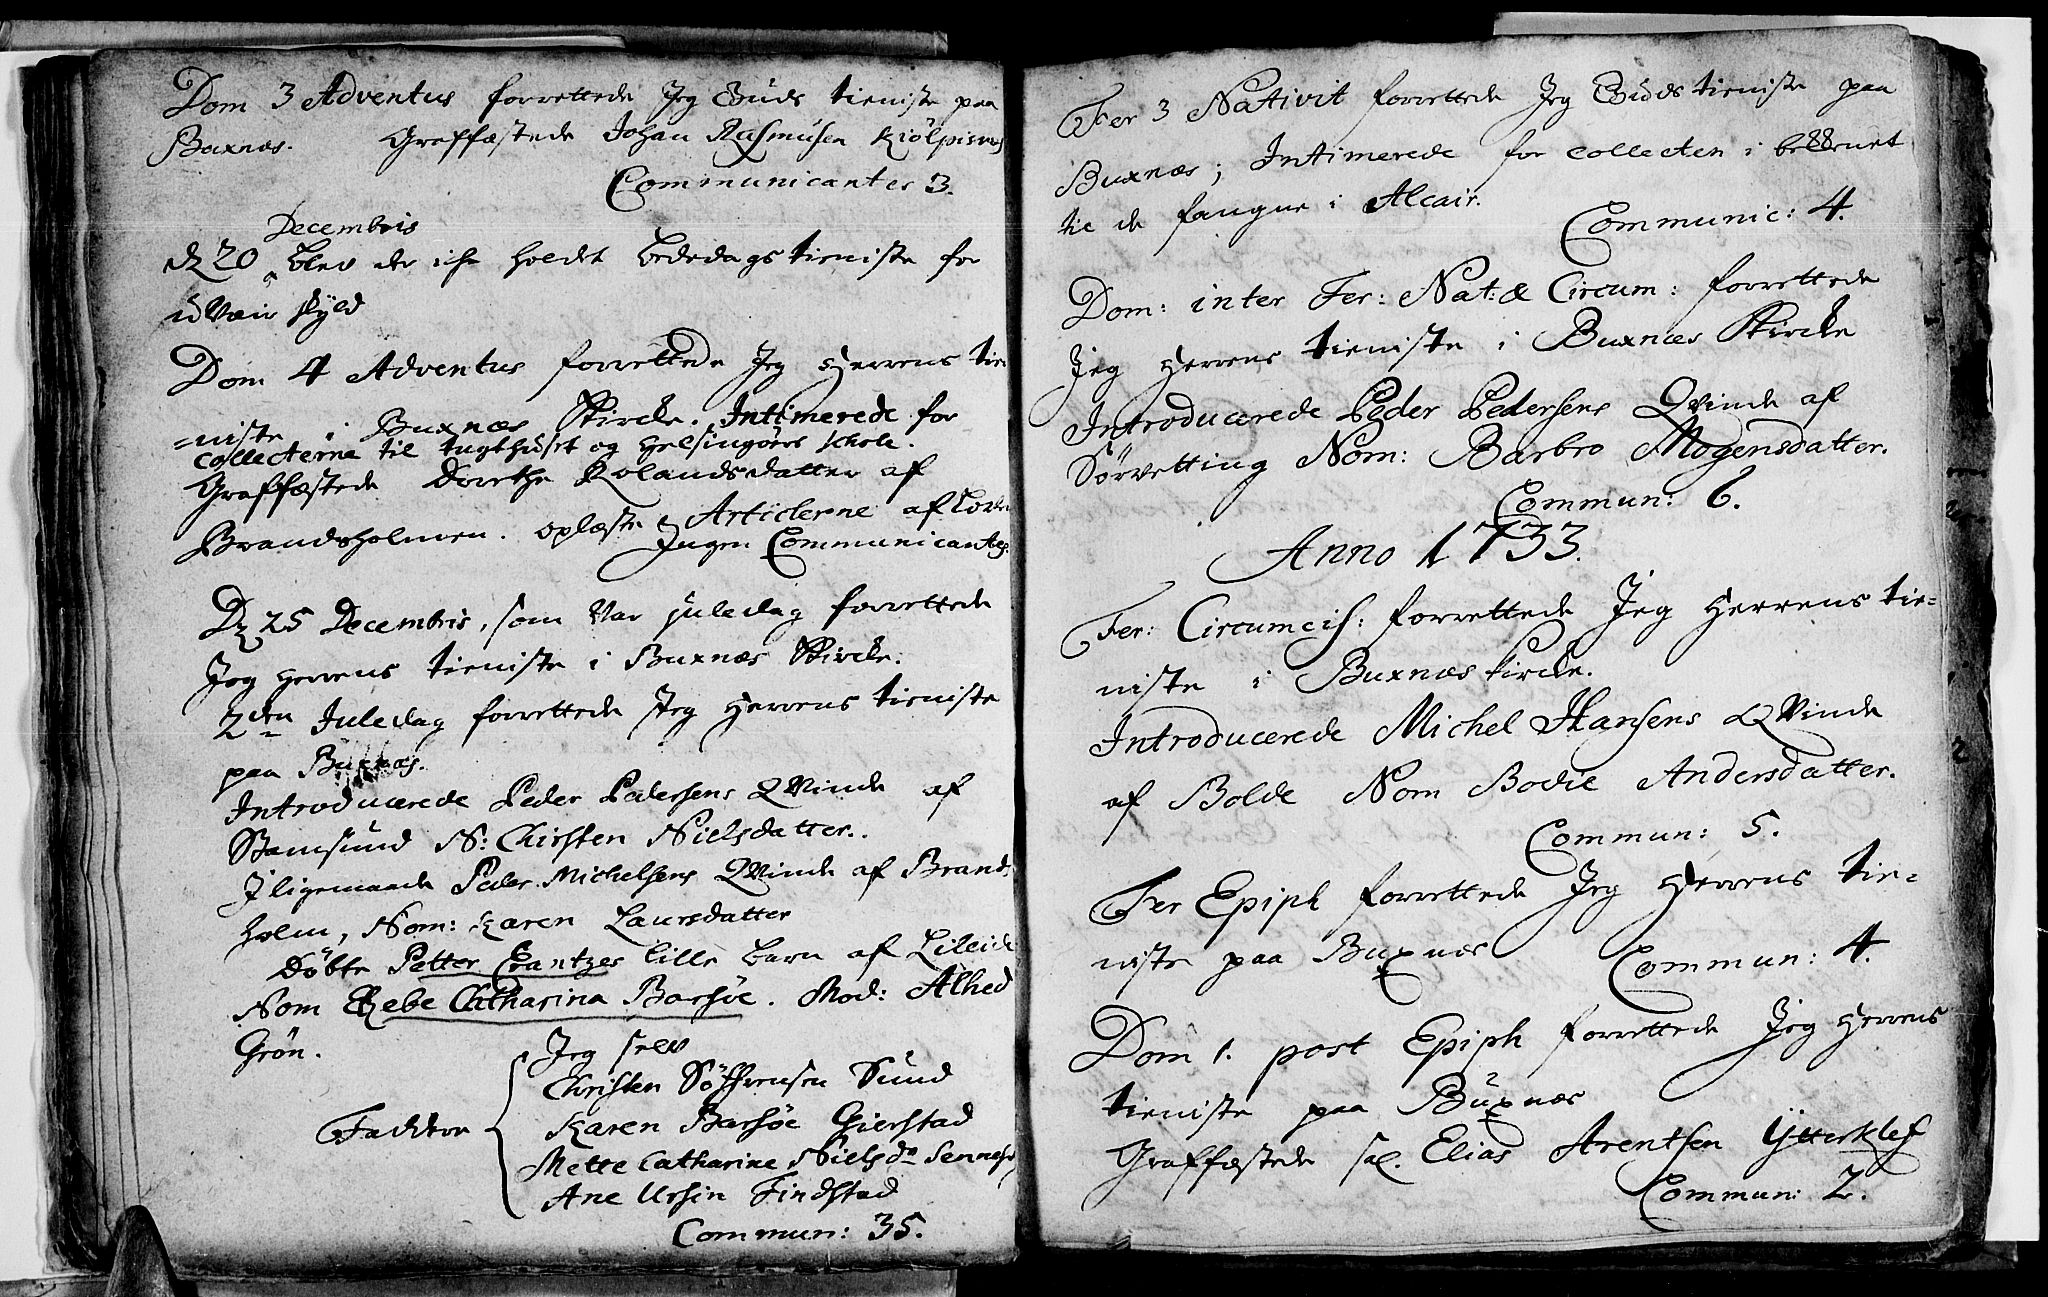 Dom 3 Adventus forrettede Jeg Guds tieniste paa
Buxnæs. Graffæstede Johan Rasmusen Kiølpisnes
Communicantes 3.
Decembris
dz 20 blev der iche holdet bededags tieniste for
uvæir skyld
Dom 4 Adventus forrettede Jeg Herrens tie
=niste i Buxnæs Kircke. Intimerede for
collecterne til tugthuset og Helsingørs schole.
Graffæstede Dorthe Rolandsdatter af
Brandsholmen. oplæste Articlerne af
Ingen Communicantes.
Dz 25 Decembris, som var juledag forrettede
Jeg Herrens tieniste i Buxnæs Kircke.
2den Juledag forrettede Jeg Herrens tieniste
paa Buxnæs.
Introducerede Peder Pedersens Qvinde af
Stamsund N: Chirsten Nielsdatter.
Iligemaade Peder Michelsens Qvinde af Brands
holm, Nom: Karen Laursdatter
Døbte Petter Crantzes lille barn af
Nom Rebe Catharina Barsøe. Mod: Alhed
Grøn.
Jeg selv
Christen Søffrensen Sund
Faddere Karen Barsøe Gierstad
Mette Catharine Nielsdr Sennes
Ane Ursin Findstad
Commun: 35.
Fer 3 Nativit forrettede Jeg Guds tieniste paa
Buxnæs; Intimerede for collecten i
til de fangne i Alcair.
Communic: 4.
Dom: inter Fer: Nat: & Circum: forrettede
Jeg Herrens tieniste i Buxnæs Kircke
Introducerede Peder Pedersens Qvinde af
Sørvetting Nom: Barbro Mogensdatter.
Commun: 6.
Anno 1733.
Fer: Circumcis: forrettede Jeg Herrens tie=
niste i Buxnæs kircke.
Introducerede Michel Hansens Qvinde
af Bolde Nom Bodie Andersdatter.
Commun: 5.
Fer Epiph forrettede Jeg Herrens tie=
niste paa Buxnæs Commun: 4.
Dom 1. post Epiph forrettede Jeg Herrens
tieniste paa Buxnæs
Graffæstede sal. Elias Arentsen Ytterklef
Commun: 2.